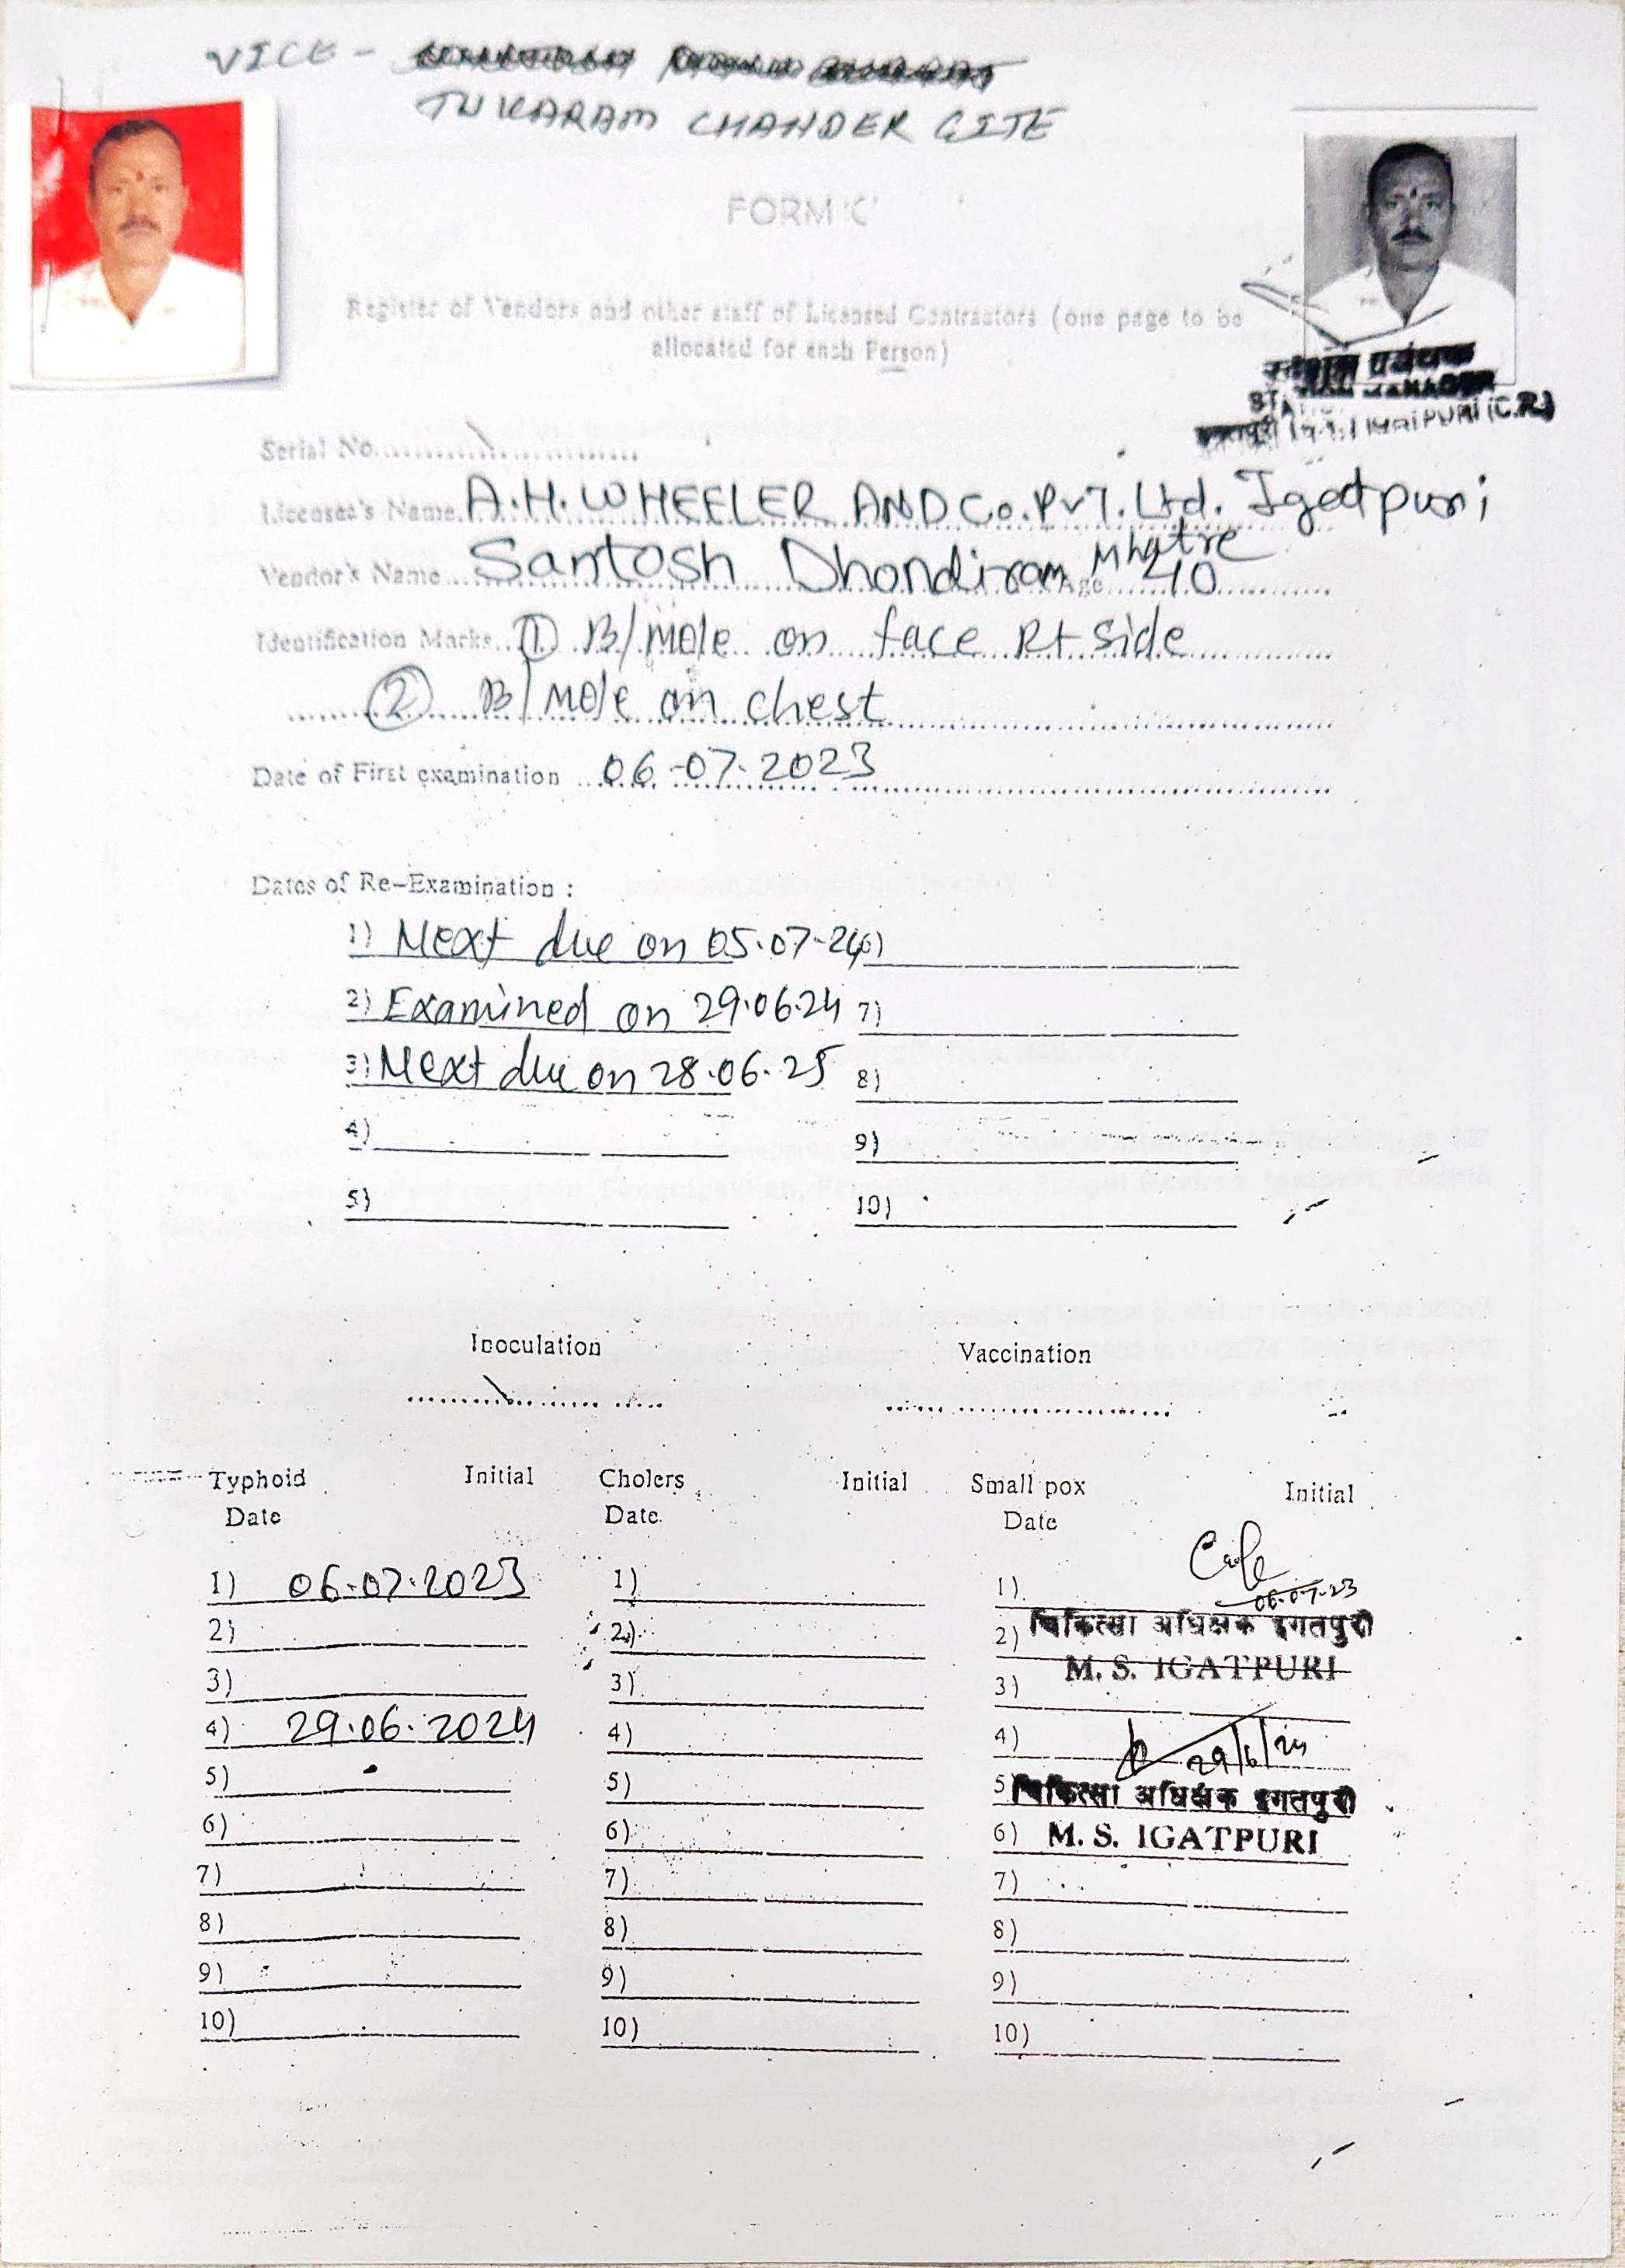 VICE -
TUKARAM CHANDER GITE
FORM 'C'
Register of Vendors and other staff of Licensed Contractors (one page to be
allocated for each Person)
स्टेशन प्रबंधक
STATION MANAGER
IGATPURI (C.R.)
Serial No.
Licensee's Name A.H. WHEELER AND Co. PVT. Ltd. Igatpuri
Vendor's Name Santosh Dhondiram Mhatre Age 40
Identification Marks ① B/mole on face Rt side
② B/mole on chest
Date of First examination 06-07-2023
Dates of Re-Examination :
1) Next due on 05.07-24 6)
2) Examined on 29.06.24 7)
3) Next due on 28.06.25 8)
4) 9)
5) 10)
Inoculation Vaccination
Typhoid Initial Cholers Initial Small pox Initial
Date Date. Date
1) 06-07-2023 1) 1) 06-07-23
2) 2) 2) चिकित्सा अधिक्षक इगतपुरी
M. S. IGATPURI
3) 3) 3)
4) 29.06.2024 4) 4) 29/6/24
5) 5) 5) चिकित्सा अधिक्षक इगतपुरी
6) 6) 6) M. S. IGATPURI
7) 7) 7)
8) 8) 8)
9) 9) 9)
10) 10) 10)